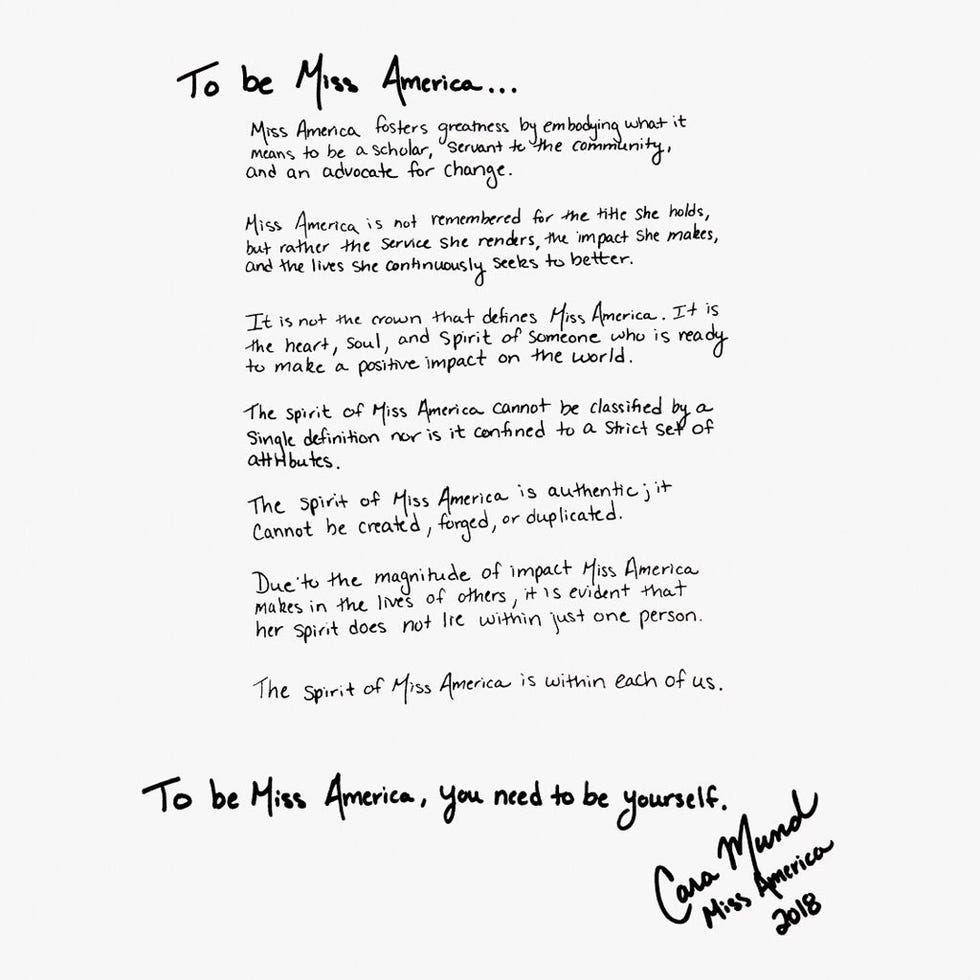 To be Miss America...
Miss America fosters greatness by embodying what it
means to be a scholar, servant to the community,
and an advocate for change.
Miss America is not remembered for the title she holds,
but rather the service she renders, the impact she makes,
and the lives she continuously seeks to better.
It is not the crown that defines Miss America. It is
the heart, soul, and spirit of someone who is ready
to make a positive impact on the world.
The spirit of Miss America cannot be classified by a
single definition nor is it confined to a strict set of
attributes.
The spirit of Miss America is authentic; it
cannot be created, forged, or duplicated.
Due to the magnitude of impact Miss America
makes in the lives of others, it is evident that
her spirit does not lie within just one person.
The spirit of Miss America is within each of us.
To be Miss America, you need to be yourself.
Cara Mund
Miss America
2018